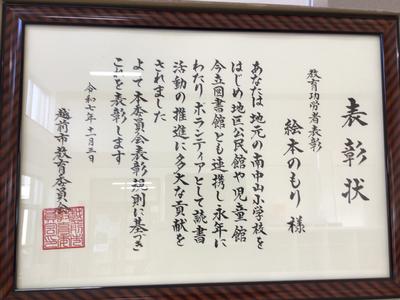 表彰状
教育功労者表彰
絵本のもり 様
あなたは地元の南中山小学校を
はじめ地区公民館や児童館
今立図書館とも連携し永年に
わたりボランティアとして読書
活動の推進に多大な貢献を
されました
よって本委員会表彰規則に基づき
ここに表彰します
令和七年十一月三日
越前市教育委員会